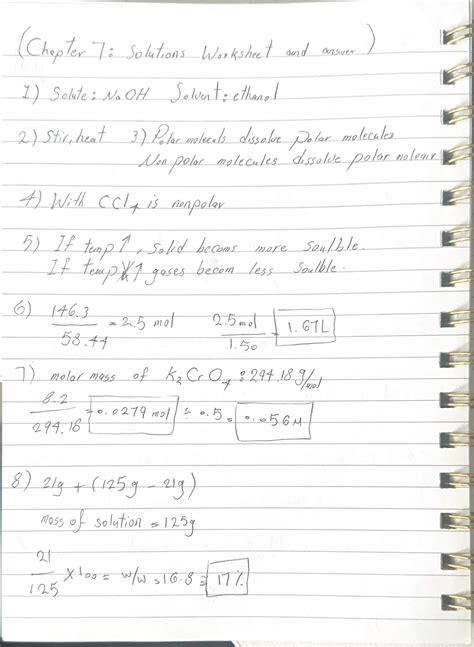 (Chapter 7: Solutions Worksheet and answer)
1) Solute: NaOH Solvent: ethanol
2) Stir, heat 3) Polar molecals dissolve Polar molecules
Non polar molecules dissolve polar
4) With CCl4 is nonpolar
5) If temp↑, Solid becoms more soulble.
If temp ↑ gases becom less soulble.
6) 146.3 / 58.44 = 2.5 mol 2.5 mol / 1.50 = 1.67L
7) molar mass of K2CrO4 : 294.18 g/mol
8.2 / 294.18 = 0.0279 mol ÷ 0.5 = 0.056M
8) 21g + (125g - 21g)
mass of solution = 125g
21 / 125 × 100 = w/w = 16.8 = 17%